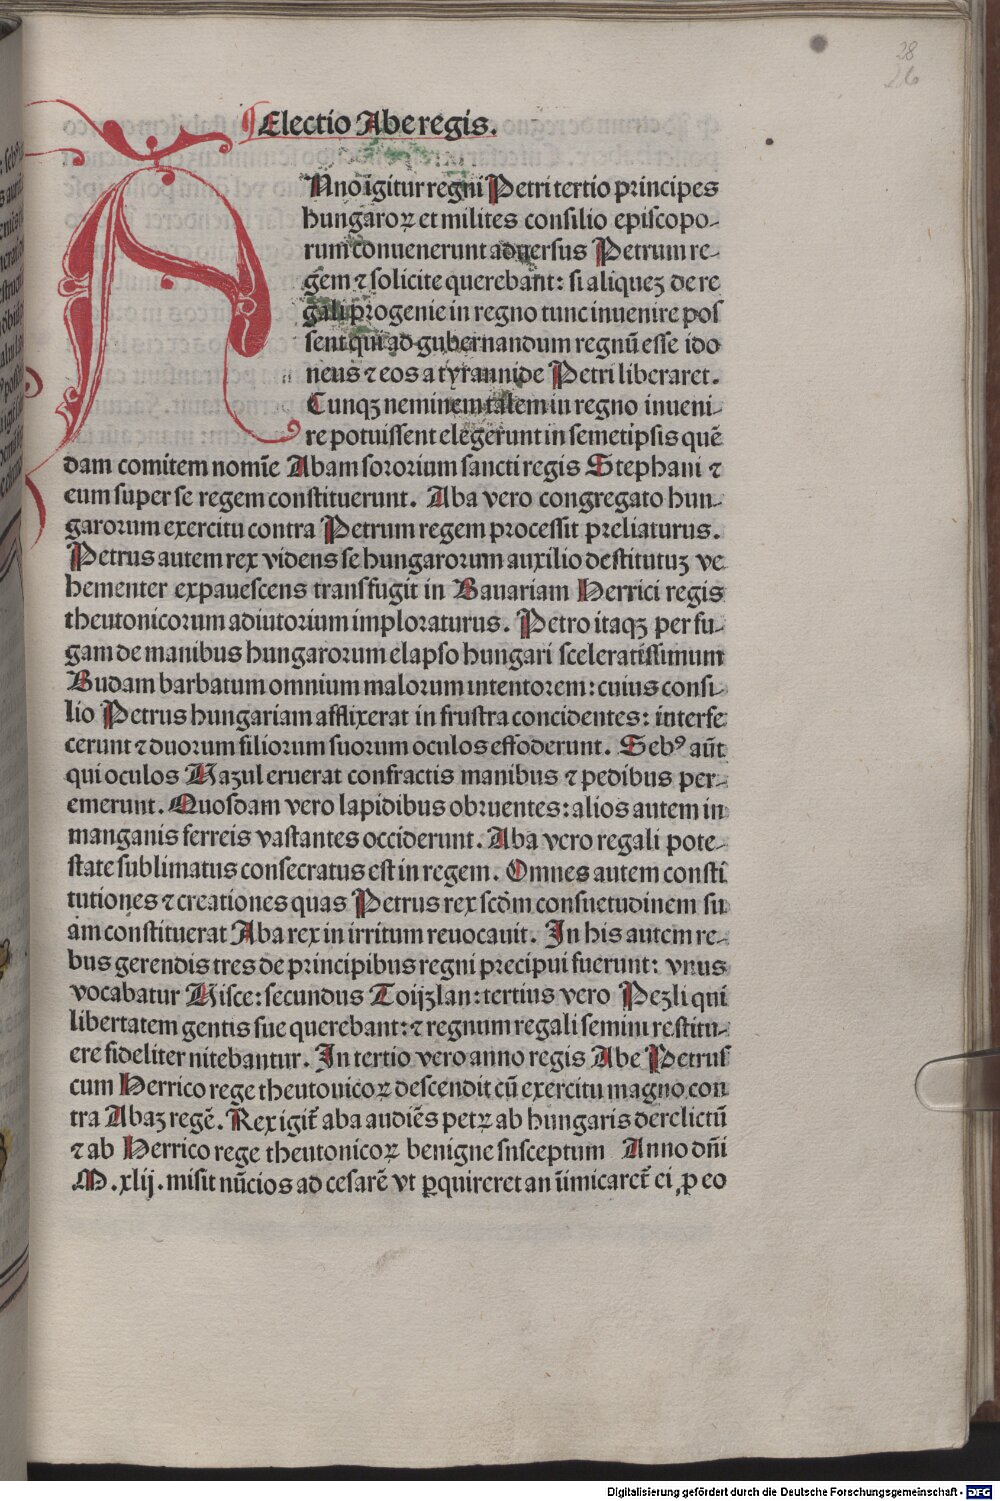 38
26
Electio Abe regis.
Anno īgitur regni Petri tertio principes
hungaroꝝ et milites consilio episcopo-
rum conuenerunt aduersus Petrum re-
gēm ⁊ solicite querebant: si aliqueʒ de re
gali progenie in regno tunc inuenire pos
sent qui ad gubernandum regnū esse ido
neus ⁊ eos a tyrannide Petri liberaret.
Cunqʒ neminem talem in regno inueni-
re potuissent elegerunt in semetipsis quē
dam comitem nomīe Abam sororium sancti regis Stephani ⁊
eum super se regem constituerunt. Aba vero congregato hun-
garorum exercitu contra Petrum regem processit preliaturus.
Petrus autem rex videns se hungarorum auxilio destitutuʒ ve
hementer expauescens transfugit in Bauariam Herrici regis
theutonicorum adiutorium imploraturus. Petro itaqʒ per fu-
gam de manibus hungarorum elapso hungari sceleratissimum
Budam barbatum omnium malorum intentorem: cuius consi-
lio Petrus hungariam afflixerat in frustra concidentes: interfe
cerunt ⁊ duorum filiorum suorum oculos effoderunt. Sebꝰ aūt
qui oculos Vazul eruerat confractis manibus ⁊ pedibus per-
emerunt. Quosdam vero lapidibus obruentes: alios autem in
manganis ferreis vastantes occiderunt. Aba vero regali pote-
state sublimatus consecratus est in regem. Omnes autem consti
tutiones ⁊ creationes quas Petrus rex scd̄m consuetudinem su
am constituerat Aba rex in irritum reuocauit. In his autem re-
bus gerendis tres de principibus regni precipui fuerunt: vnus
vocabatur Visce: secundus Toijzlan: tertius vero Pezli qui
libertatem gentis sue querebant: ⁊ regnum regali semini restitu-
ere fideliter nitebantur. In tertio vero anno regis Abe Petrus
cum Herrico rege theutonicoꝝ descendit cū exercitu magno con
tra Abaʒ regē. Rex igit̄ aba audiēs petꝝ ab hungaris derelictū
⁊ ab Herrico rege theutonicoꝝ benigne susceptum Anno dn̄i
M.xlij. misit nūcios ad cesarē vt ꝑquireret an īimicaret̄ ei ꝓ eo
Digitalisierung gefördert durch die Deutsche Forschungsgemeinschaft - DFG